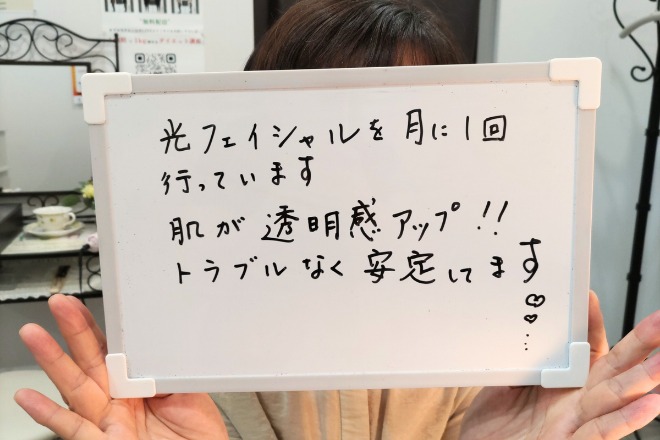 光フェイシャルを月に1回
行っています
肌が透明感アップ!!
トラブルなく安定してます